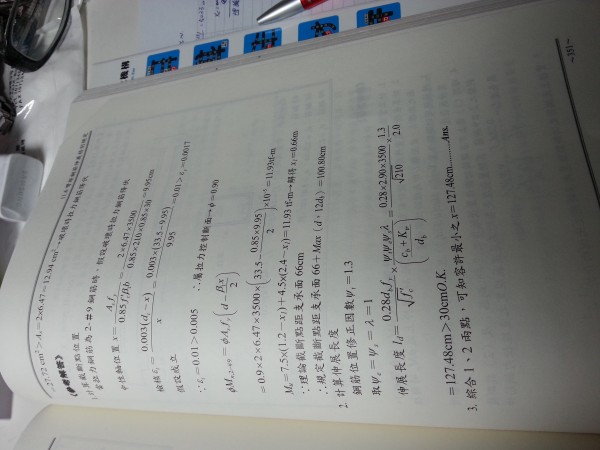 =27.72 cm² > A_s = 2×6.47 = 12.94 cm² →破壞時拉力鋼筋降伏
《參考解答》
1. 計算截斷點位置
當拉力鋼筋為 2-#9 鋼筋時,假設破壞時拉力鋼筋降伏
中性軸位置 x = A_s f_y / 0.85 f'_c β_1 b = 2×6.47×3500 / 0.85×210×0.85×30 = 9.95cm
檢核 ε_t = 0.003(d_t − x) / x = 0.003×(33.5−9.95) / 9.95 = 0.01 > ε_y = 0.0017
假設成立
∵ε_t = 0.01 > 0.005 ∴屬拉力控制斷面→φ=0.90
φM_n,2-#9 = φA_s f_y (d − β_1x / 2)
=0.9×2×6.47×3500×(33.5 − 0.85×9.95 / 2)×10⁻⁵ = 11.93tf-m
M_t = 7.5×(1.2−x_t)+4.5×(2.4−x_t)=11.93 tf-m→解得 x_t=0.66m
∴理論截斷點距支承面 66cm
∴規定截斷點距支承面 66+Max (d,12d_b) = 100.80cm
2. 計算伸展長度
鋼筋位置修正因數ψ_t = 1.3
取ψ_e = ψ_s = λ = 1
伸展長度 l_d = 0.28d_b f_y / √f'_c × ψ_t ψ_e ψ_s λ / ((c_b + K_tr) / d_b) = 0.28×2.90×3500 / √210 × 1.3 / 2.0
=127.48cm > 30cm O.K.
3. 綜合 1、2 兩點,可知容許最小之 x=127.48cm...........Ans.
~351~
機構